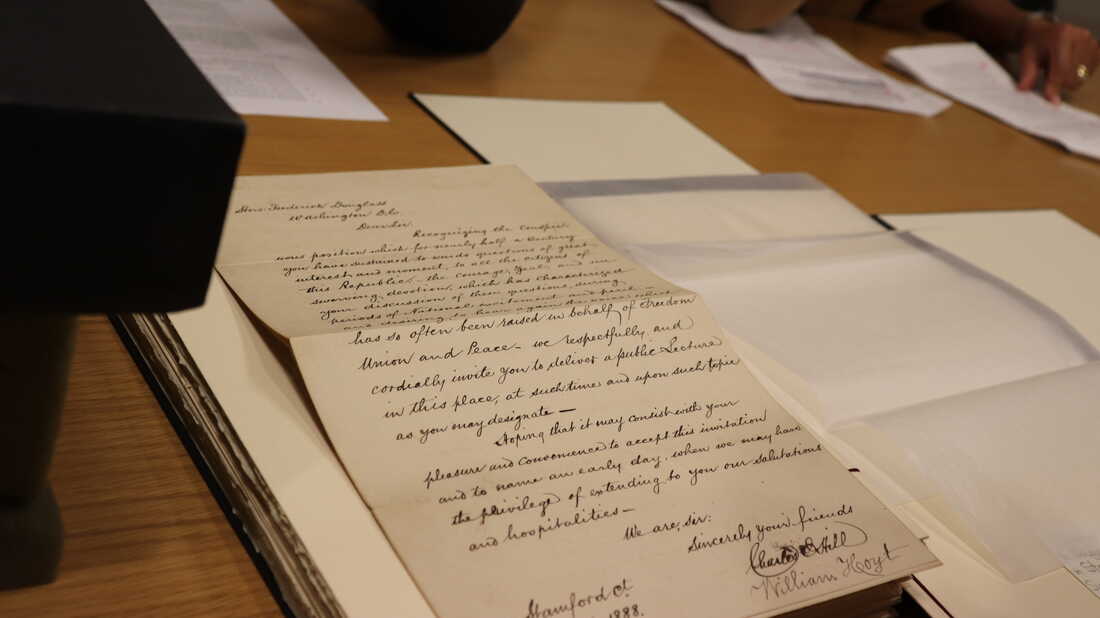 Hon. Frederick Douglass
Washington D.C.
Dear Sir.
Recognizing the conspic-
uous position which for nearly half a Century
you have sustained towards questions of great
interest and moment, to all the citizens of
this Republic – the courage, zeal, and un
swerving devotion, which has characterized
your discussion of these questions, during
periods of National excitement and peril –
and desiring to hear again the voice which
has so often been raised in behalf of Freedom
Union and Peace – we respectfully and
cordially invite you to deliver a public Lecture
in this place, at such time and upon such topic
as you may designate —
Hoping that it may consist with your
pleasure and convenience to accept this invitation
and to name an early day, when we may have
the privilege of extending to you our salutations
and hospitalities –
We are, sir:
Sincerely your friends
Charles E Hill
William Hoyt
Stamford Ct.
1888.